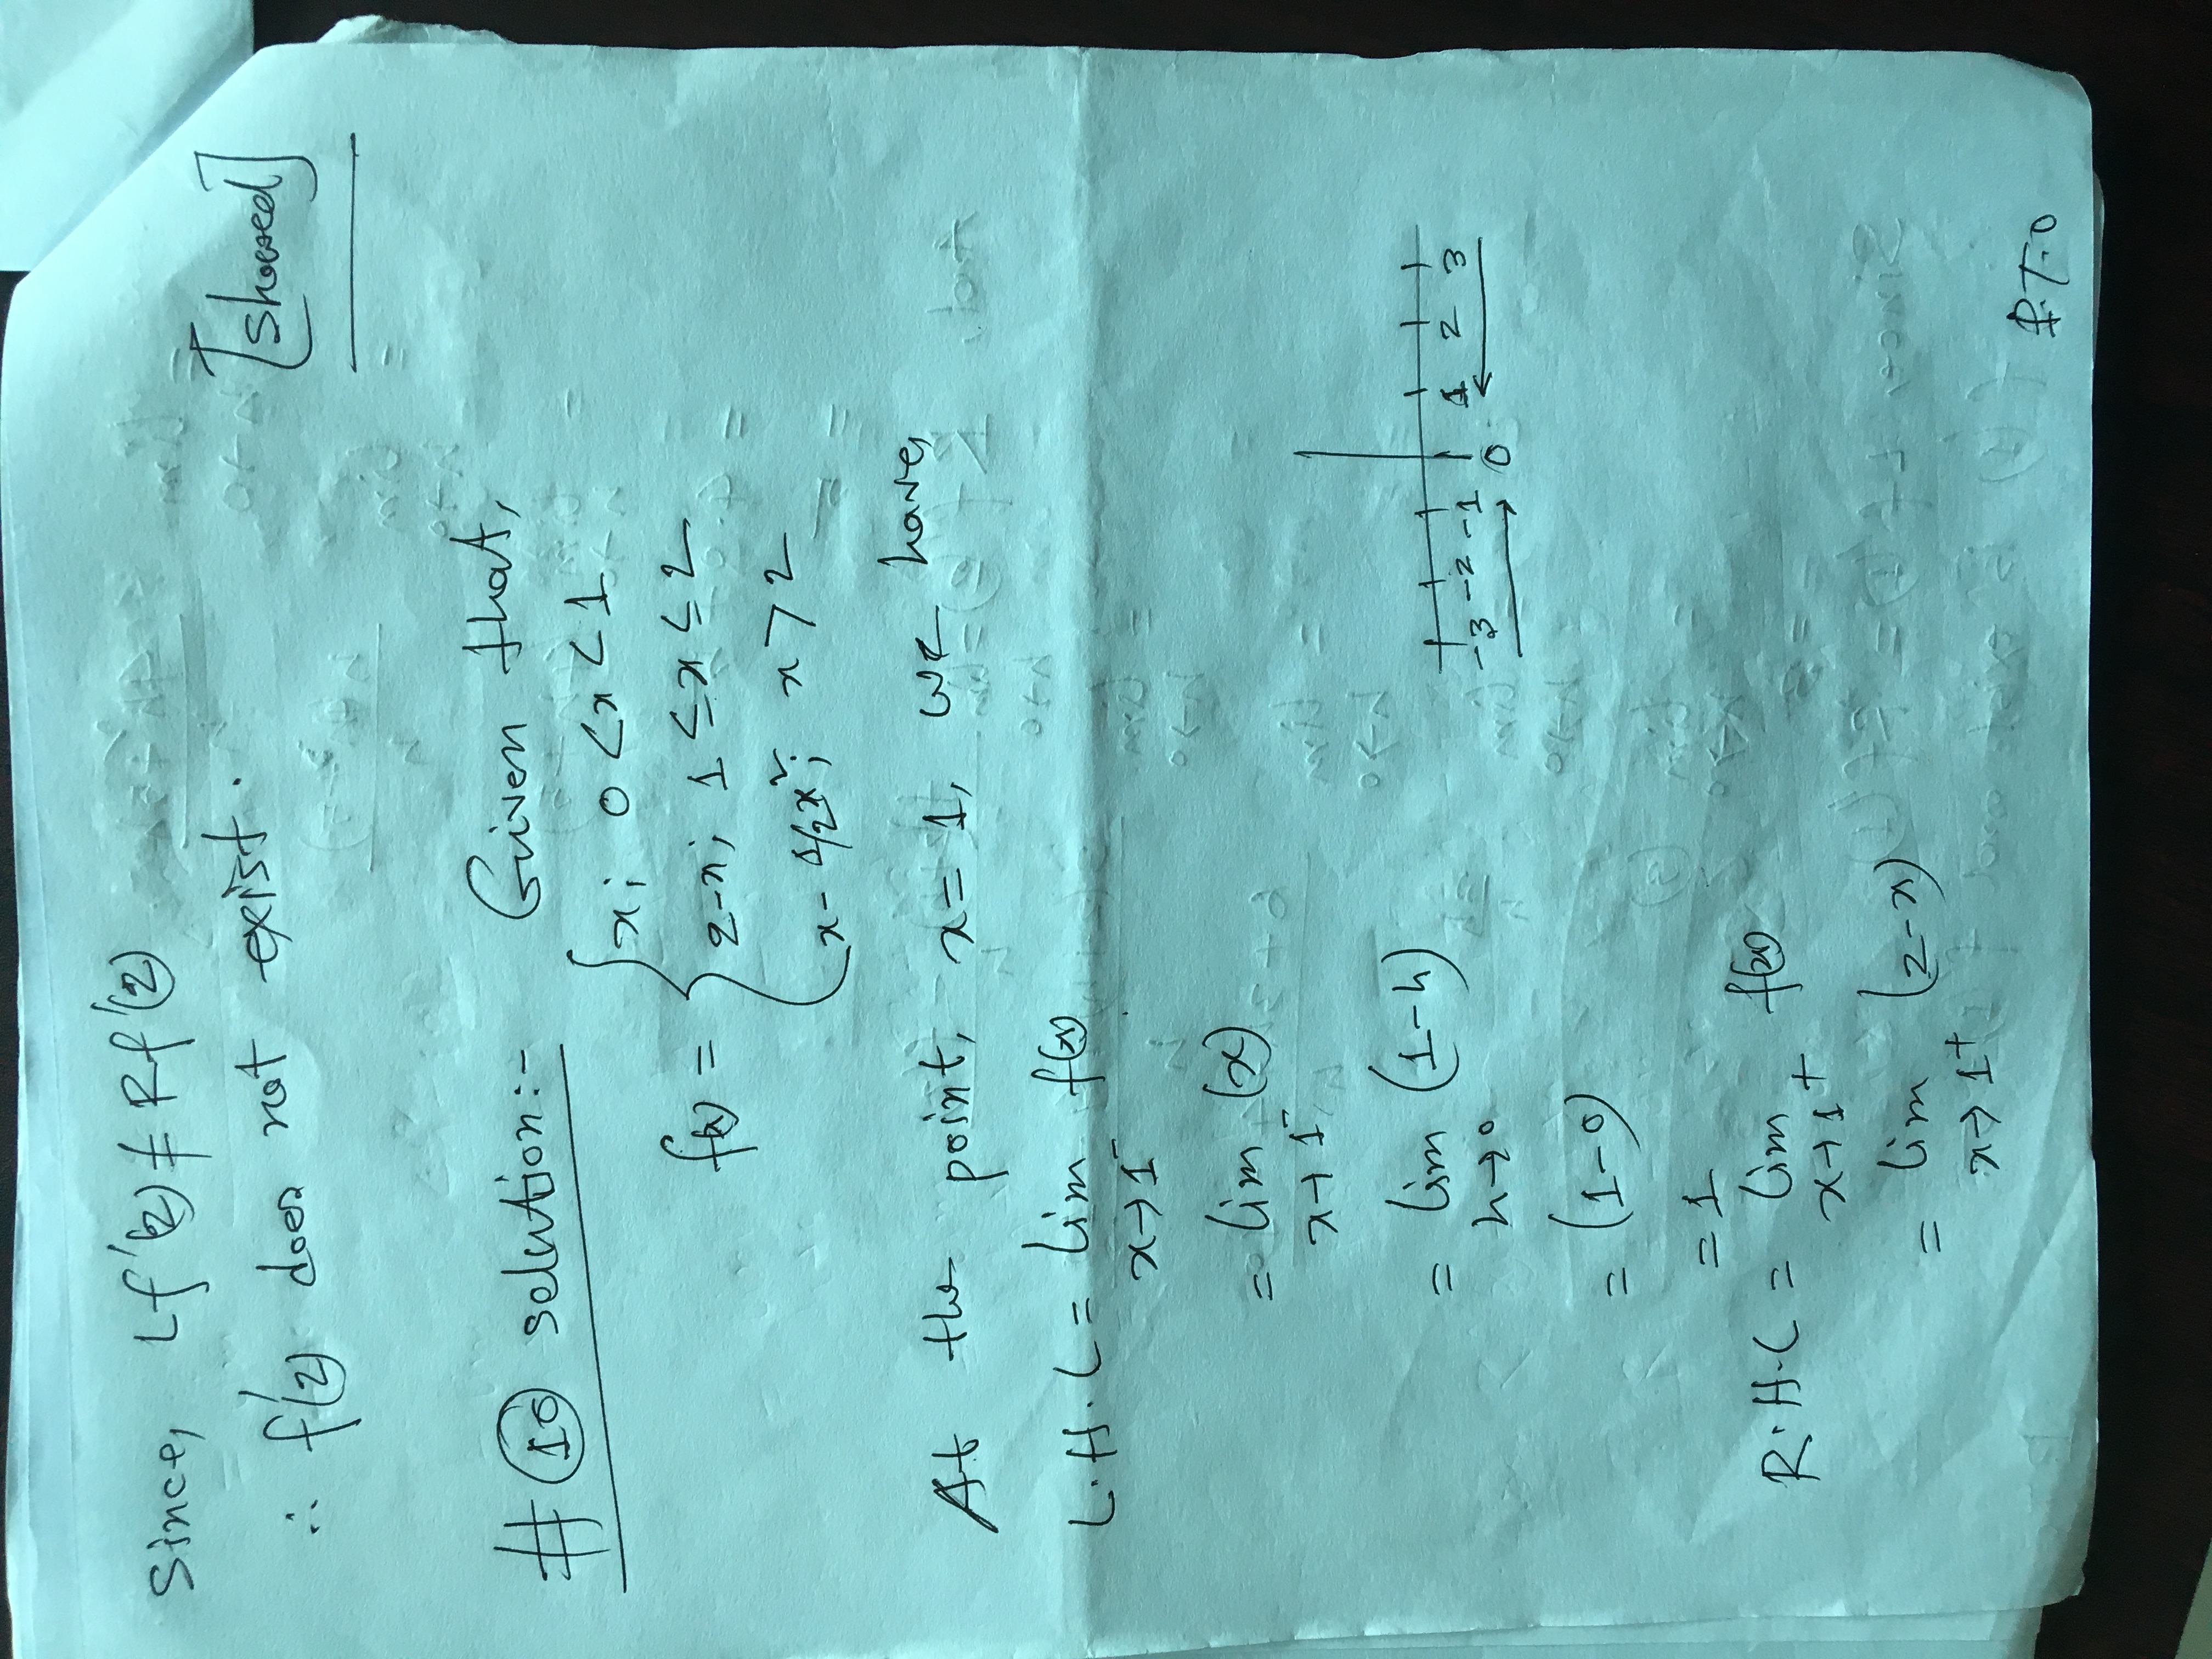 Since, Lf'(2) ≠ Rf'(2)
∴ f'(2) does not exist.
[showed]
# 10 solution:- Given that,
f(x) = { x; 0 < x < 1
2-x; 1 ≤ x ≤ 2
x - 1/2x²; x > 2
At the point, x = 1, we have,
L.H.L = lim f(x)
x→1⁻
= lim (x)
x→1⁻
= lim (1-h)
h→0
= (1-0)
= 1
-3 -2 -1 0 1 2 3
R.H.L = lim f(x)
x→1⁺
= lim (2-x)
x→1⁺
P.T.O